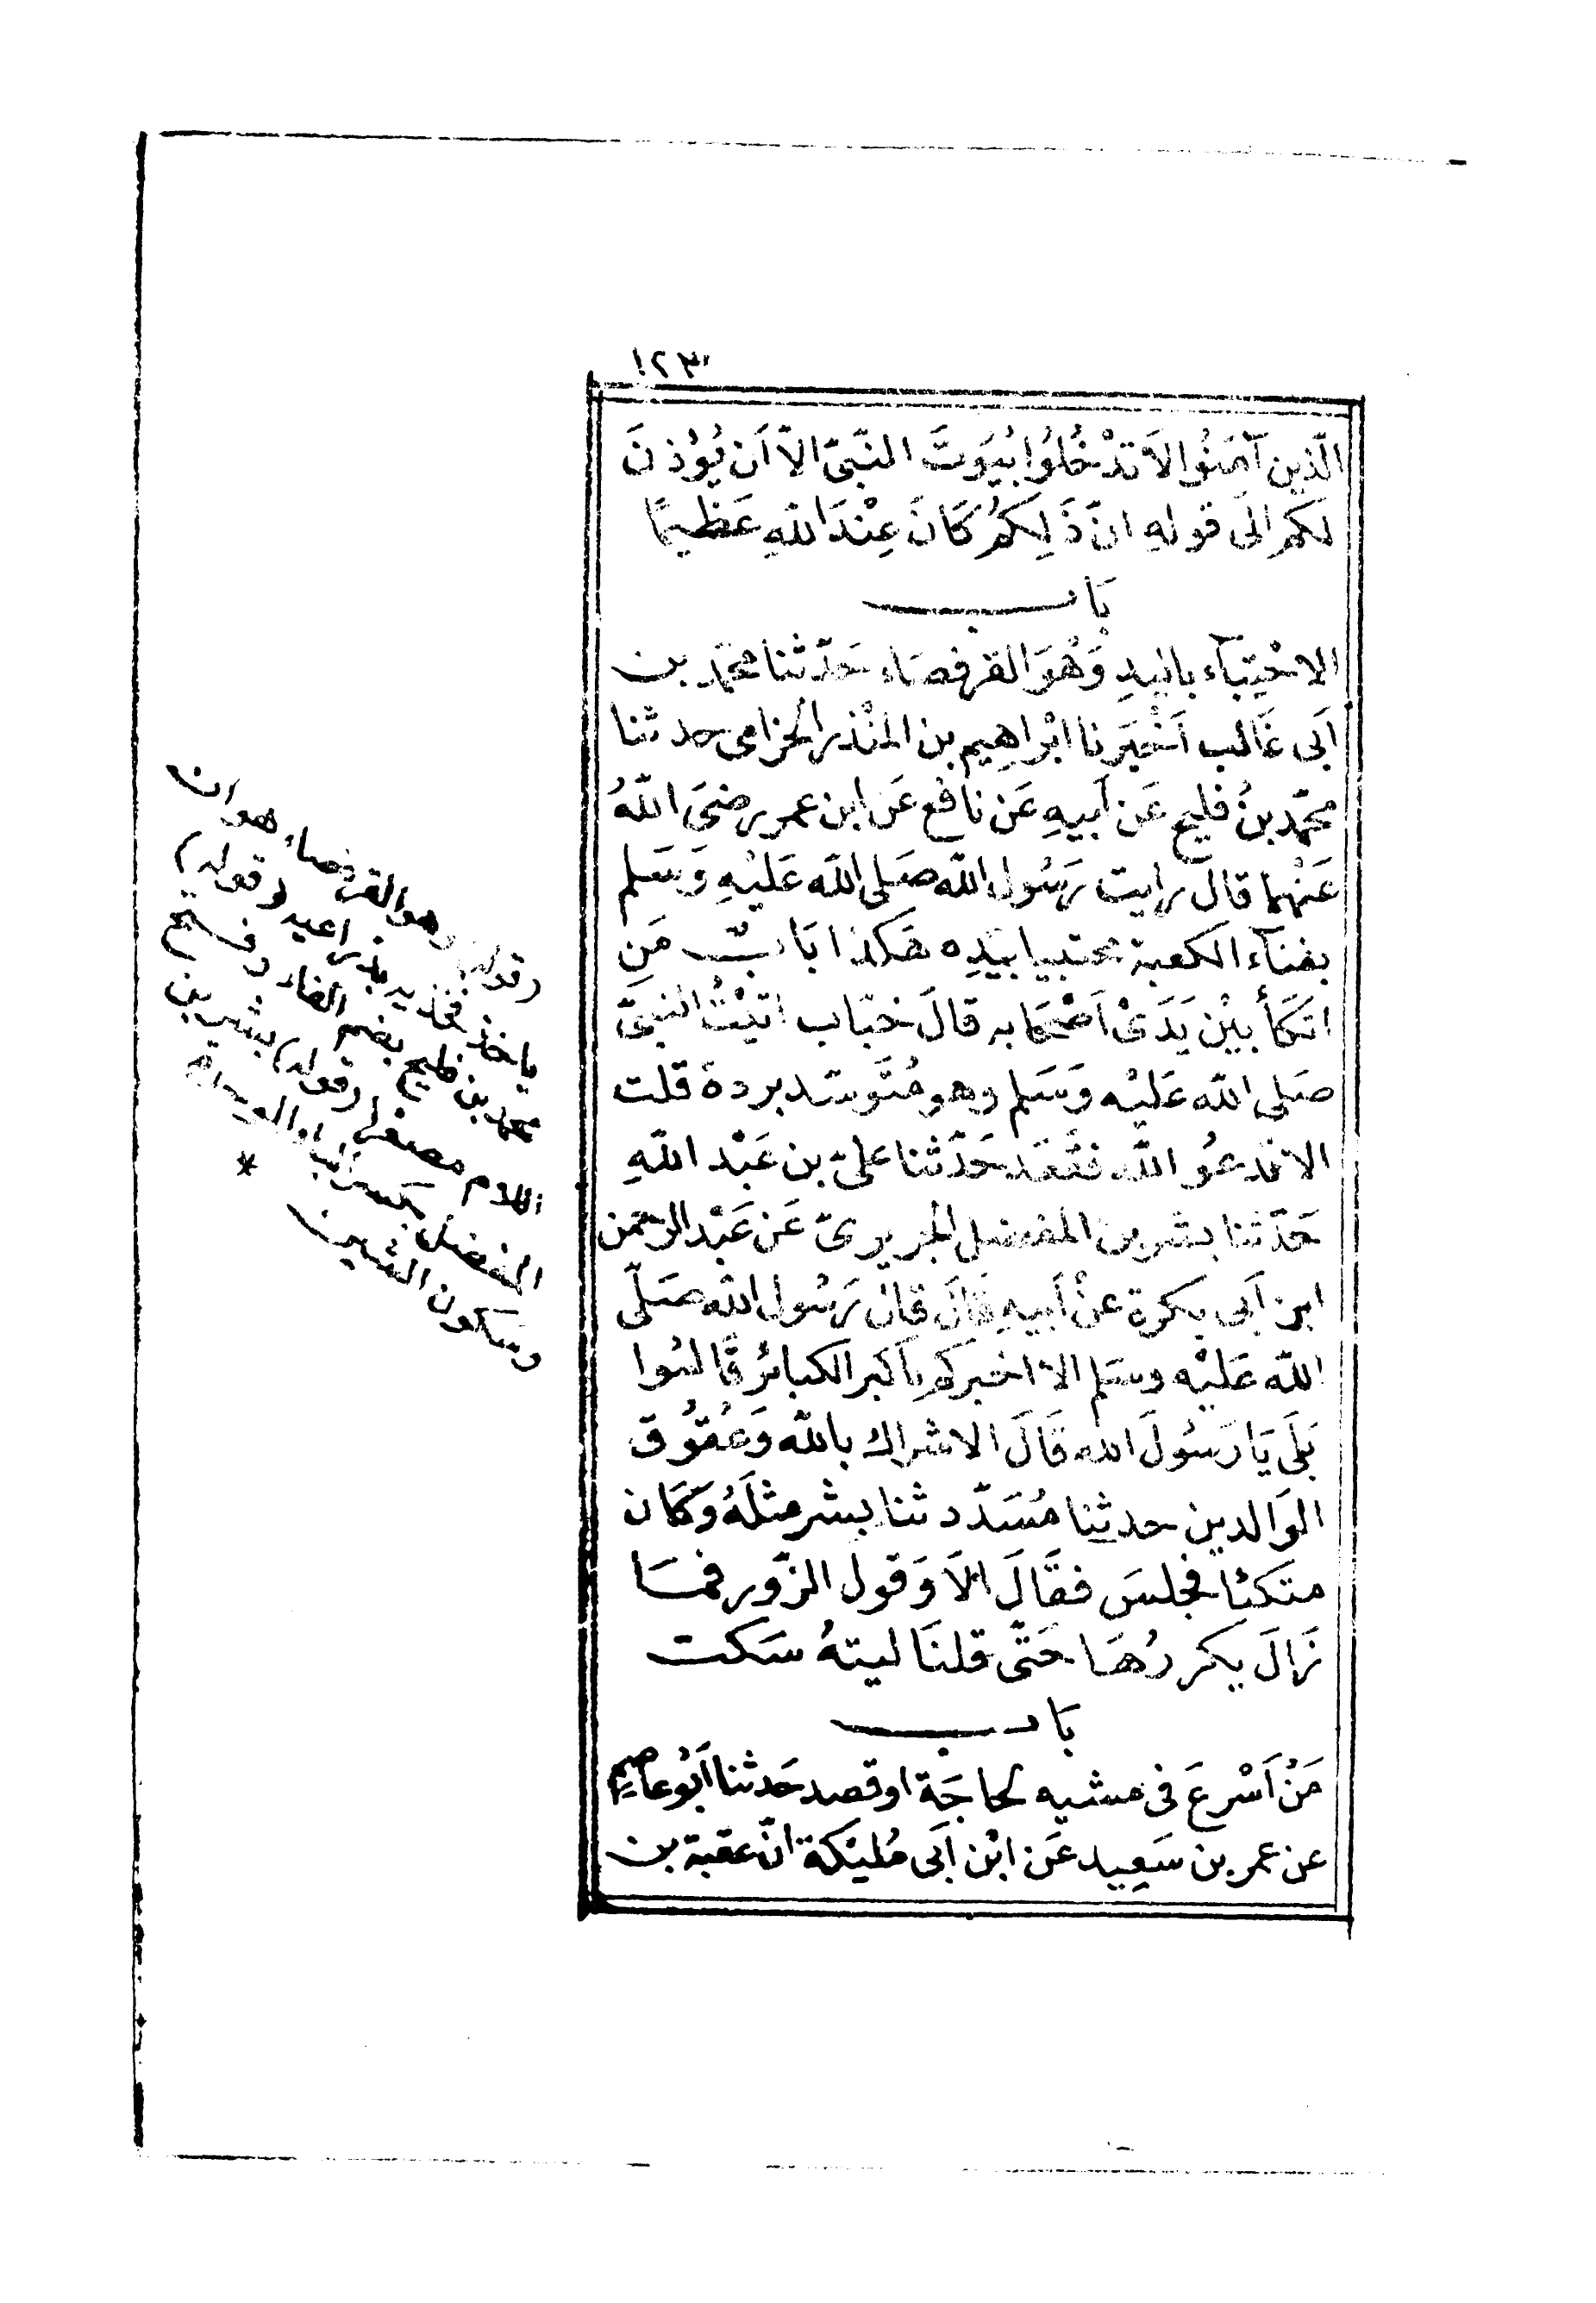 ١٢٣
الّذين آمَنُوا لاَ تَدْخُلُوا بُيُوتَ النّبىّ الاّ اَن يُوُذنَ
لَكم الَى قولهِ انّ ذَلِكُمُ كَانَ عِنْدَ اللهِ عَظِيمًا
بَاب
الاحْتِبَآء باليدِ وَهُوَ القرفصَاء حَدّثنا محمّد بن
اَبى غَالب اَخْبَرنا ابْراهِيم بن المنْذر الحزامى حدثنا
محمّد بنُ فليح عَن اَبيهِ عَن نافع عَن ابن عمر رضىَ اللهُ
عَنْهما قالَ رايت رَسُول الله صَلى الله عَليْهِ وَسَلم
بفنآء الكعبة محتبيا بيَدِه هَكذا بَابُ مَنِ
اتكَأ بيْن يَدَىْ اَصْحَابه قالَ خبّاب اتيْتُ النبىّ
صَلى الله عَليْه وَسَلم وهو مُتَوسّد بردة قلت
الا تَدعُو الله فقَعَد حَدّثنا علىّ بن عَبْد اللهِ
حَدّثنا بشر بن المفضل الجريرىّ عَن عَبْد الرحمن
ابن اَبى بكرة عنْ اَبيهِ قالَ قال رَسُول الله صَلّى
الله عَليْه وسَلم الا اخبركم باَكبر الكبائر قالُوا
بَلَى يَا رَسُولَ الله قَالَ الاشراك بالله وَعُقُوق
الوَالدين حدثنا مُسَدّد ثنا بشر مثلَهُ وَكَان
متكئا فجلسَ فقَالَ اَلاَ وَقول الزّور فمَا
زَالَ يكررُهَا حَتّى قلنَا ليتهُ سَكت
بَاب
مَنْ اَسْرعَ فى مشيه لحاجَة او قصد حَدثنا اَبُو عاصِم
عن عمر بن سَعِيد عَن ابْن اَبى مُليْكة انّ عقبة بن
(قوله) وهو القرفصاء هو ان
ياخذ فخذيه بذراعيه (وقوله)
محمد بن فليح بضم الفاء وفتح
اللام مصغرا (وقوله) بشر بن
المفضل بكسر الباء الموحدة
وسكون الشين *